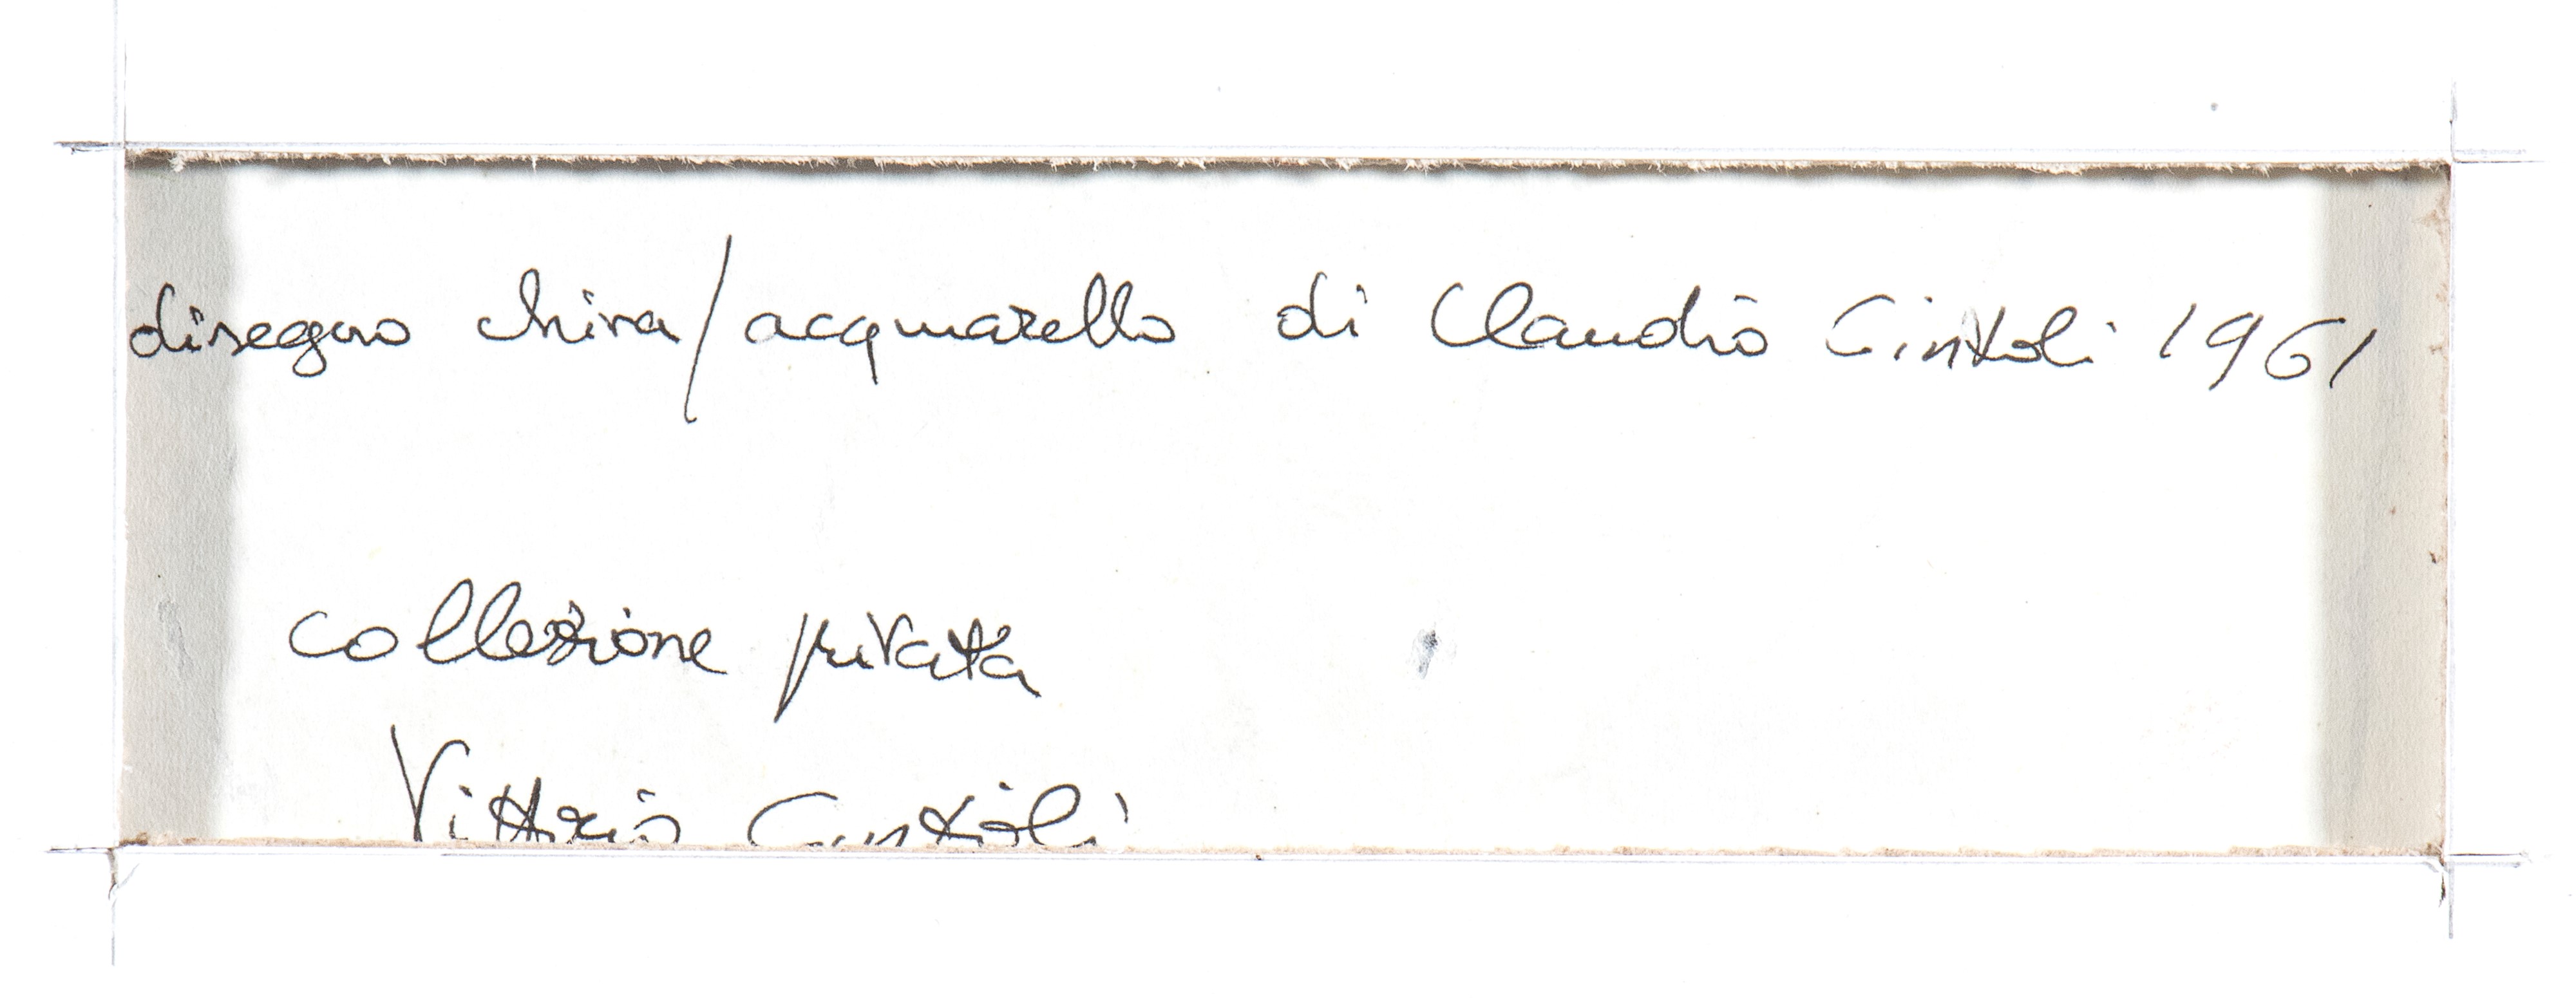 disegno china/acquarello di Claudio Cintoli 1961
collezione privata
Vittorio Cintoli